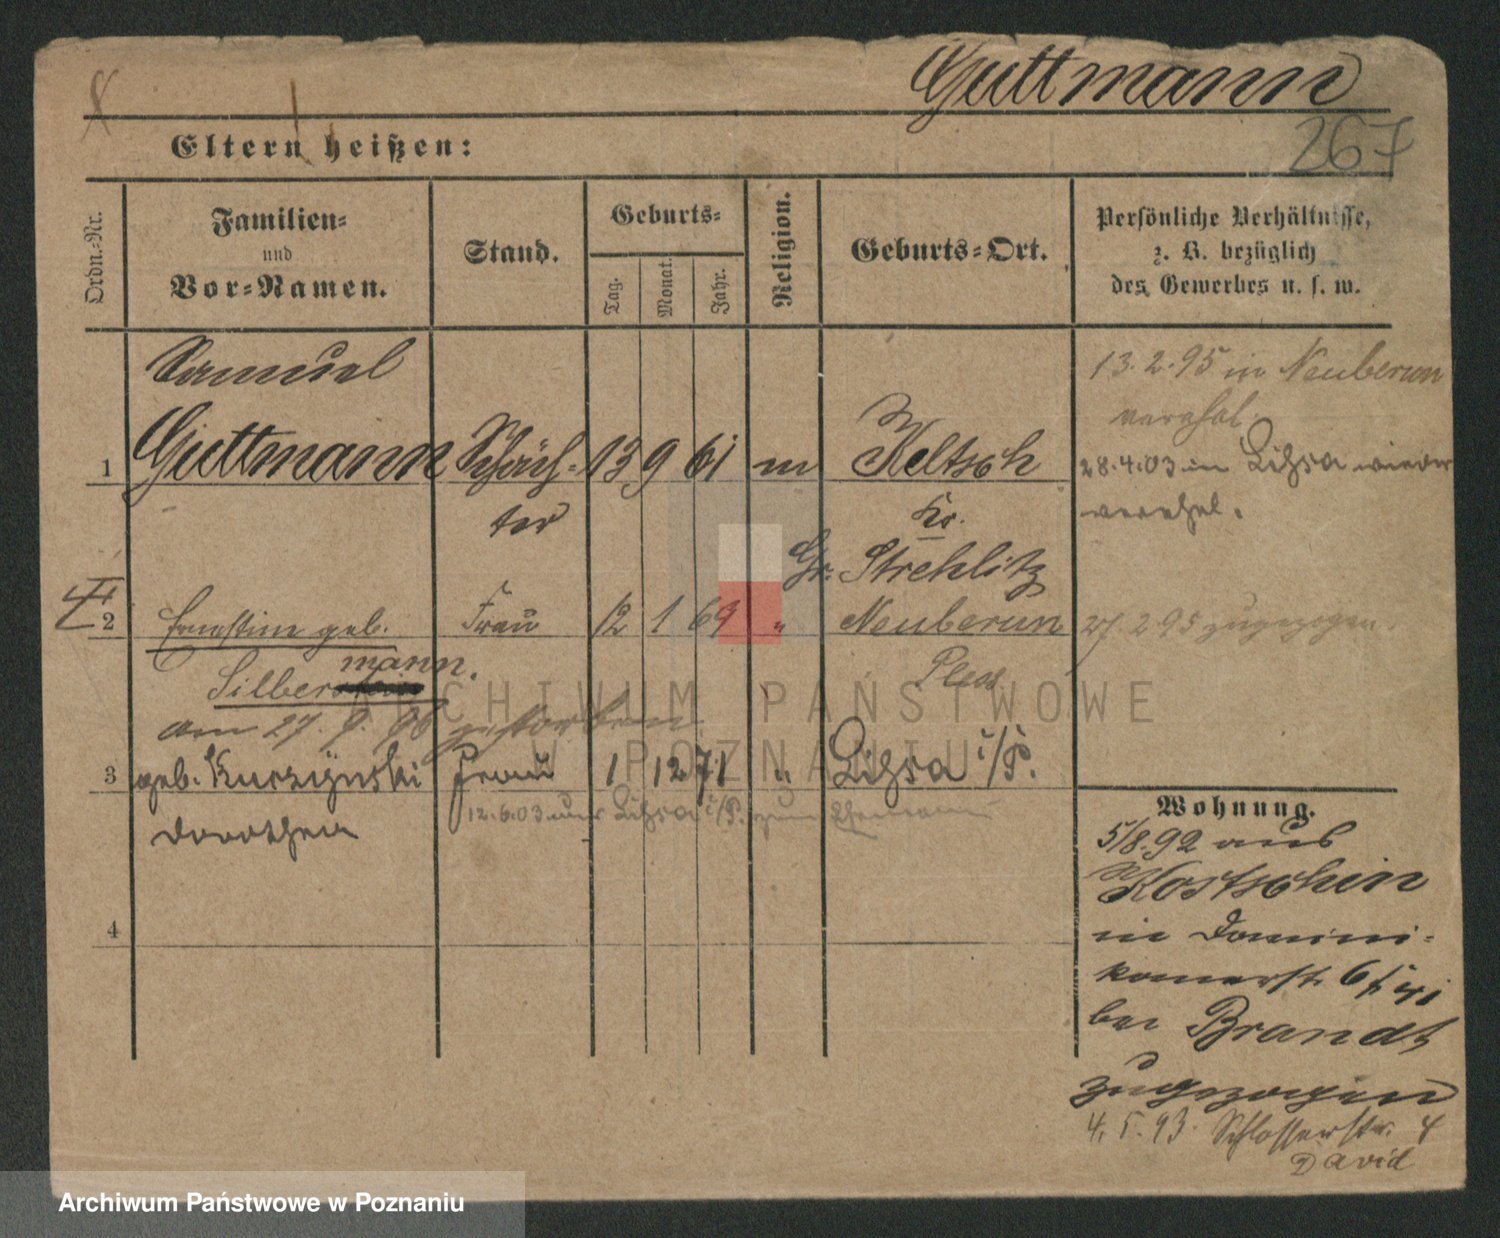 Guttmann
267
Eltern heißen:
Ordn.-Nr.
Familien-
und
Vor-Namen.
Stand.
Geburts-
Tag.
Monat.
Jahr.
Religion.
Geburts-Ort.
Persönliche Verhältnisse,
z. B. bezüglich
des Gewerbes u. s. w.
Samuel
13.2.95 in Neuberun
verehel.
1 Guttmann Schäch- 13 9 61 m Keltsch
28.4.03 in Lissa wieder
ter Kr.
verehel.
Gr. Strehlitz
2 Ernestine geb. Frau 12 1 69 " Neuberun 27.2.95 zugezogen.
mann.
Silber Pless
am 27. 9. 96 gestorben.
3 geb. Kurzynski Frau 1 12 71 " Lissa i/P.
Dorothea
12.6.03 aus Lissa i/P. zum Ehemann
4
Wohnung.
5/8.92 aus
Kostschin
in Domini-
kanerst. 6
bei Brandt
zugezogen
4. 5. 93. Schlosserstr. 4
David
ARCHIWUM PAŃSTWOWE
W POZNANIU
Archiwum Państwowe w Poznaniu